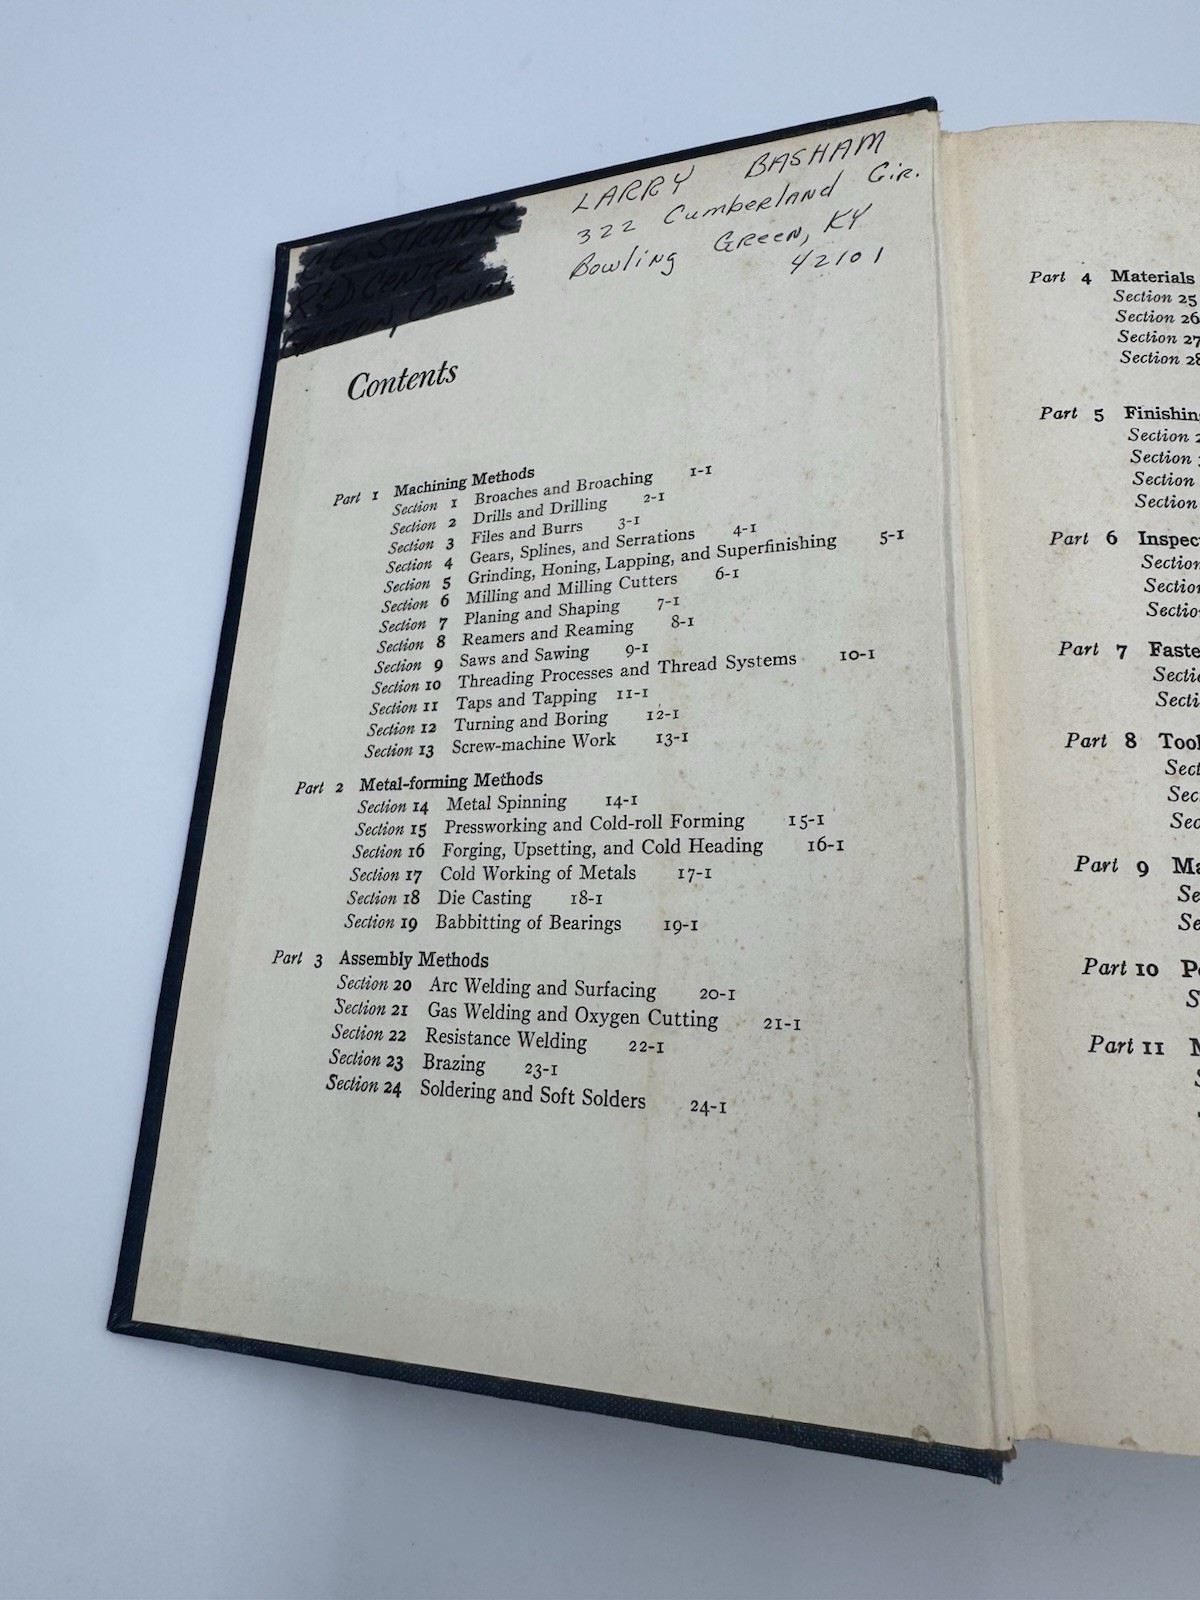 LARRY BASHAM
322 Cumberland Cir.
Bowling Green, KY
42101
STRUNK
R&D CENTER
CONN.
Contents
Part 1 Machining Methods
Section 1 Broaches and Broaching 1-1
Section 2 Drills and Drilling 2-1
Section 3 Files and Burrs 3-1
Section 4 Gears, Splines, and Serrations 4-1
Section 5 Grinding, Honing, Lapping, and Superfinishing 5-1
Section 6 Milling and Milling Cutters 6-1
Section 7 Planing and Shaping 7-1
Section 8 Reamers and Reaming 8-1
Section 9 Saws and Sawing 9-1
Section 10 Threading Processes and Thread Systems 10-1
Section 11 Taps and Tapping 11-1
Section 12 Turning and Boring 12-1
Section 13 Screw-machine Work 13-1
Part 2 Metal-forming Methods
Section 14 Metal Spinning 14-1
Section 15 Pressworking and Cold-roll Forming 15-1
Section 16 Forging, Upsetting, and Cold Heading 16-1
Section 17 Cold Working of Metals 17-1
Section 18 Die Casting 18-1
Section 19 Babbitting of Bearings 19-1
Part 3 Assembly Methods
Section 20 Arc Welding and Surfacing 20-1
Section 21 Gas Welding and Oxygen Cutting 21-1
Section 22 Resistance Welding 22-1
Section 23 Brazing 23-1
Section 24 Soldering and Soft Solders 24-1
Part 4 Materials
Section 25
Section 26
Section 27
Section 28
Part 5 Finishin
Section
Section
Section
Section
Part 6 Inspec
Section
Section
Section
Part 7 Faste
Secti
Secti
Part 8 Tool
Sect
Sec
Sec
Part 9 Ma
Se
Se
Part 10 P
S
Part 11